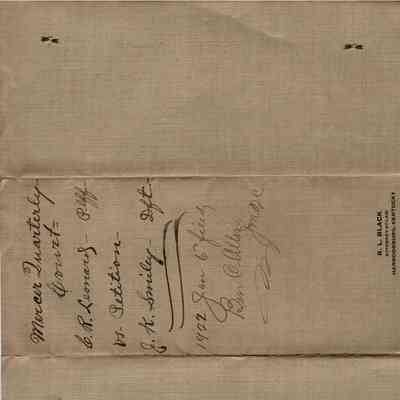 Mercer Quarterly
Court-
C. R. Leonard - Plff
vs. Petition-
J. K. Smiley - Dft-
1922 Jan 6 filed
Ben C Allen
B. L. BLACK
ATTORNEY-AT-LAW
HARRODSBURG, KENTUCKY